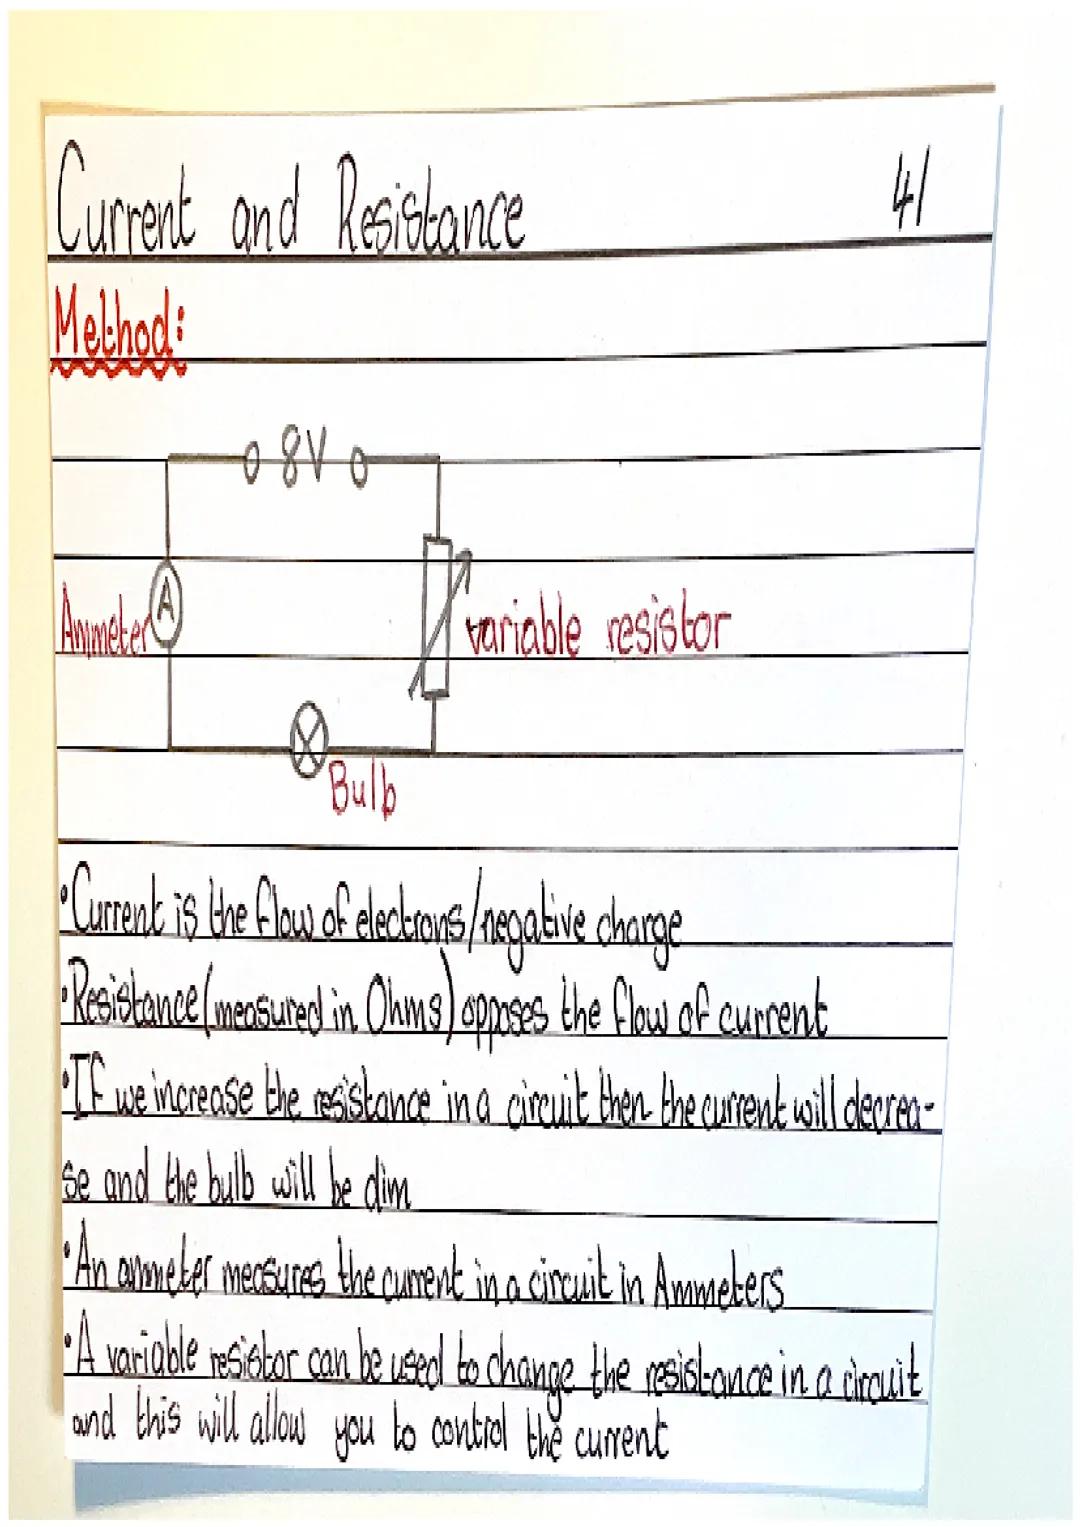 Current and Resistance 41
Method:
8V
A
Ammeter
variable resistor
Bulb
•Current is the flow of electrons/negative charge
•Resistance (measured in Ohms) opposes the flow of current
•If we increase the resistance in a circuit then the current will decrea-
se and the bulb will be dim
•An ammeter measures the current in a circuit in Ammeters
•A variable resistor can be used to change the resistance in a circuit
and this will allow you to control the current